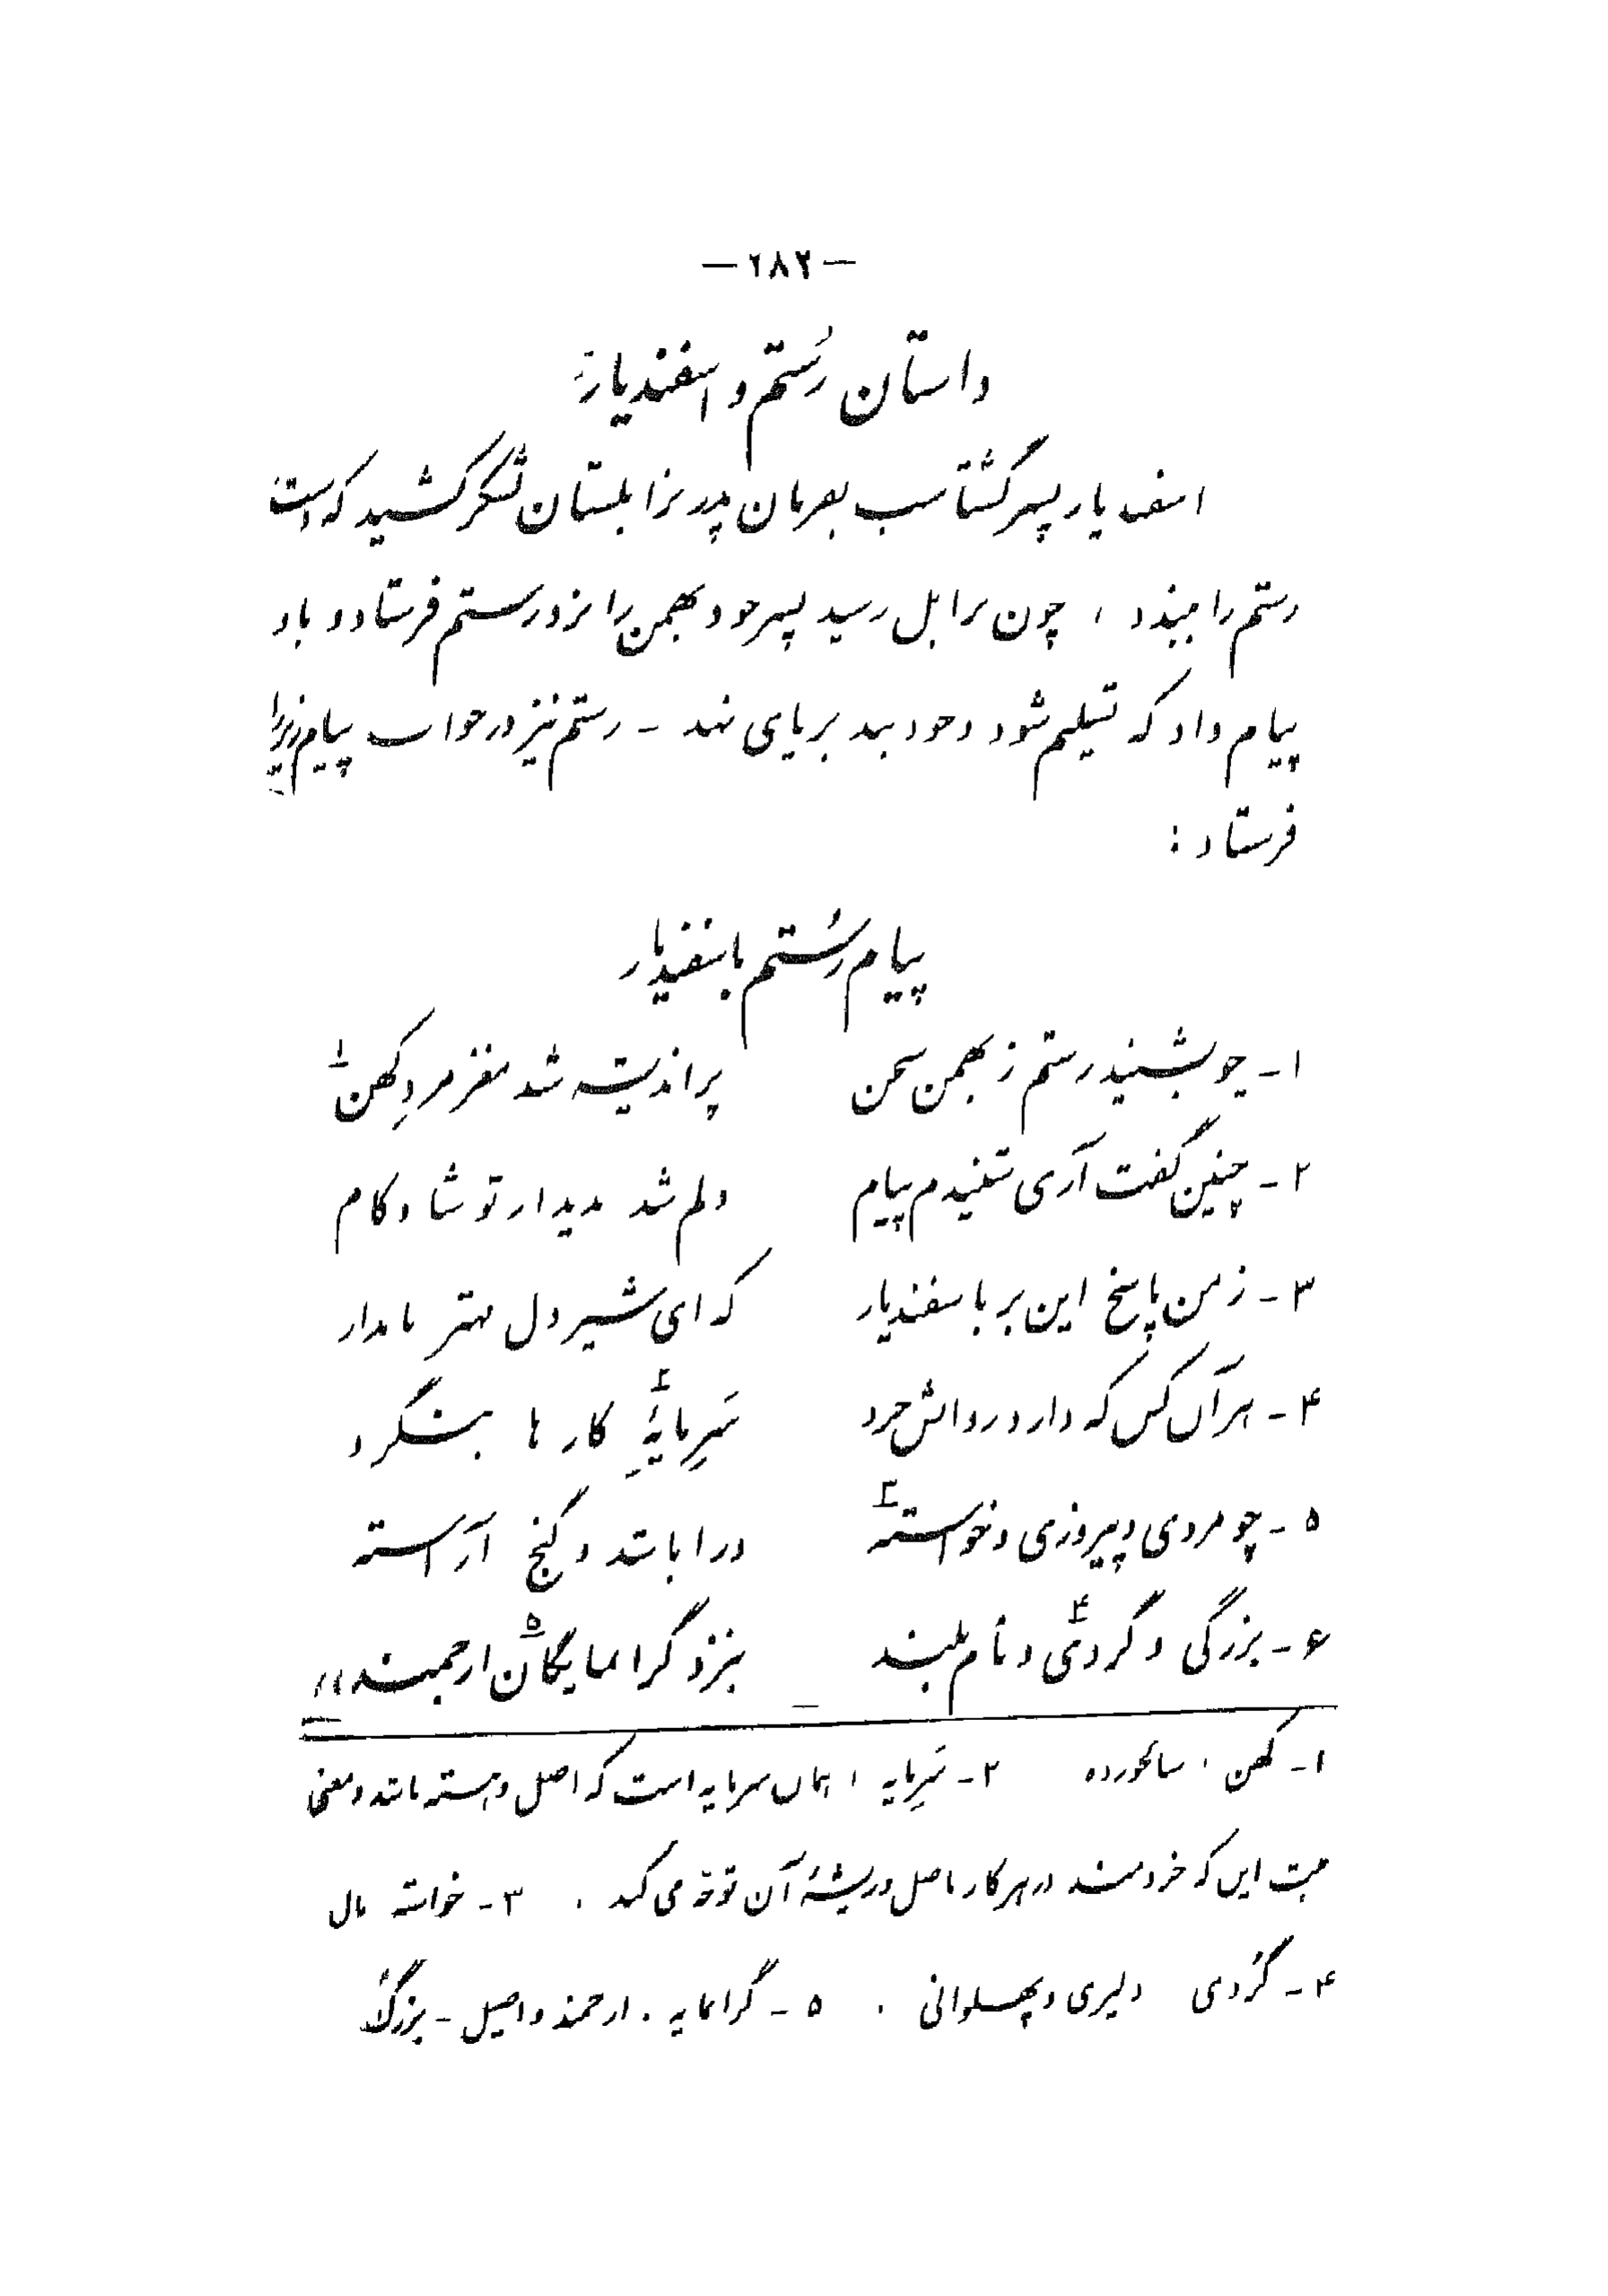 — ۲۸۲ —
داستان رُستم و اسفندیار
اسفندیار پسر گشتاسب بفرمان پدر بزابلستان لشکر کشید که دست
رستم را ببندد ، چون بزابل رسید پسر خود بهمن را نزد رستم فرستاد و باو
پیام داد که تسلیم شود و خود بند بر پای نهد - رستم نیز در جواب پیام زیر را
فرستاد :
پیام رُستم باسفندیار
۱- چو بشنید رستم ز بهمن سخن پر اندیشه شد مغز مردِ کهن ۱
۲- چنین گفت آری شنیدم پیام دلم شد بدیدار تو شاد کام
۳- ز من پاسخ این بر باسفندیار که ای شیر دل مهتر نامدار
۴- هر آن کس که دارد روانش خرد سَرِ مایهٔ ۲ کار ها بنگرد
۵- چو مردی و پیروزی و خواسته ۳ ورا باشد و گنج آراسته
۶- بزرگی و گردی ۴ و نام بلند بنزد گرانمایگان ۵ ارجمند
۱- کهن ، سالخورده ۲- سَرِمایه ، همان سرمایه است که اصل و هسته باشد و معنی
بیت این که خردمند در هر کار باصل و ریشهٔ آن توجّه می کند . ۳- خواسته مال
۴- گُردی دلیری و پهلوانی . ۵- گرانمایه . ارجمند و اصیل - بزرگ